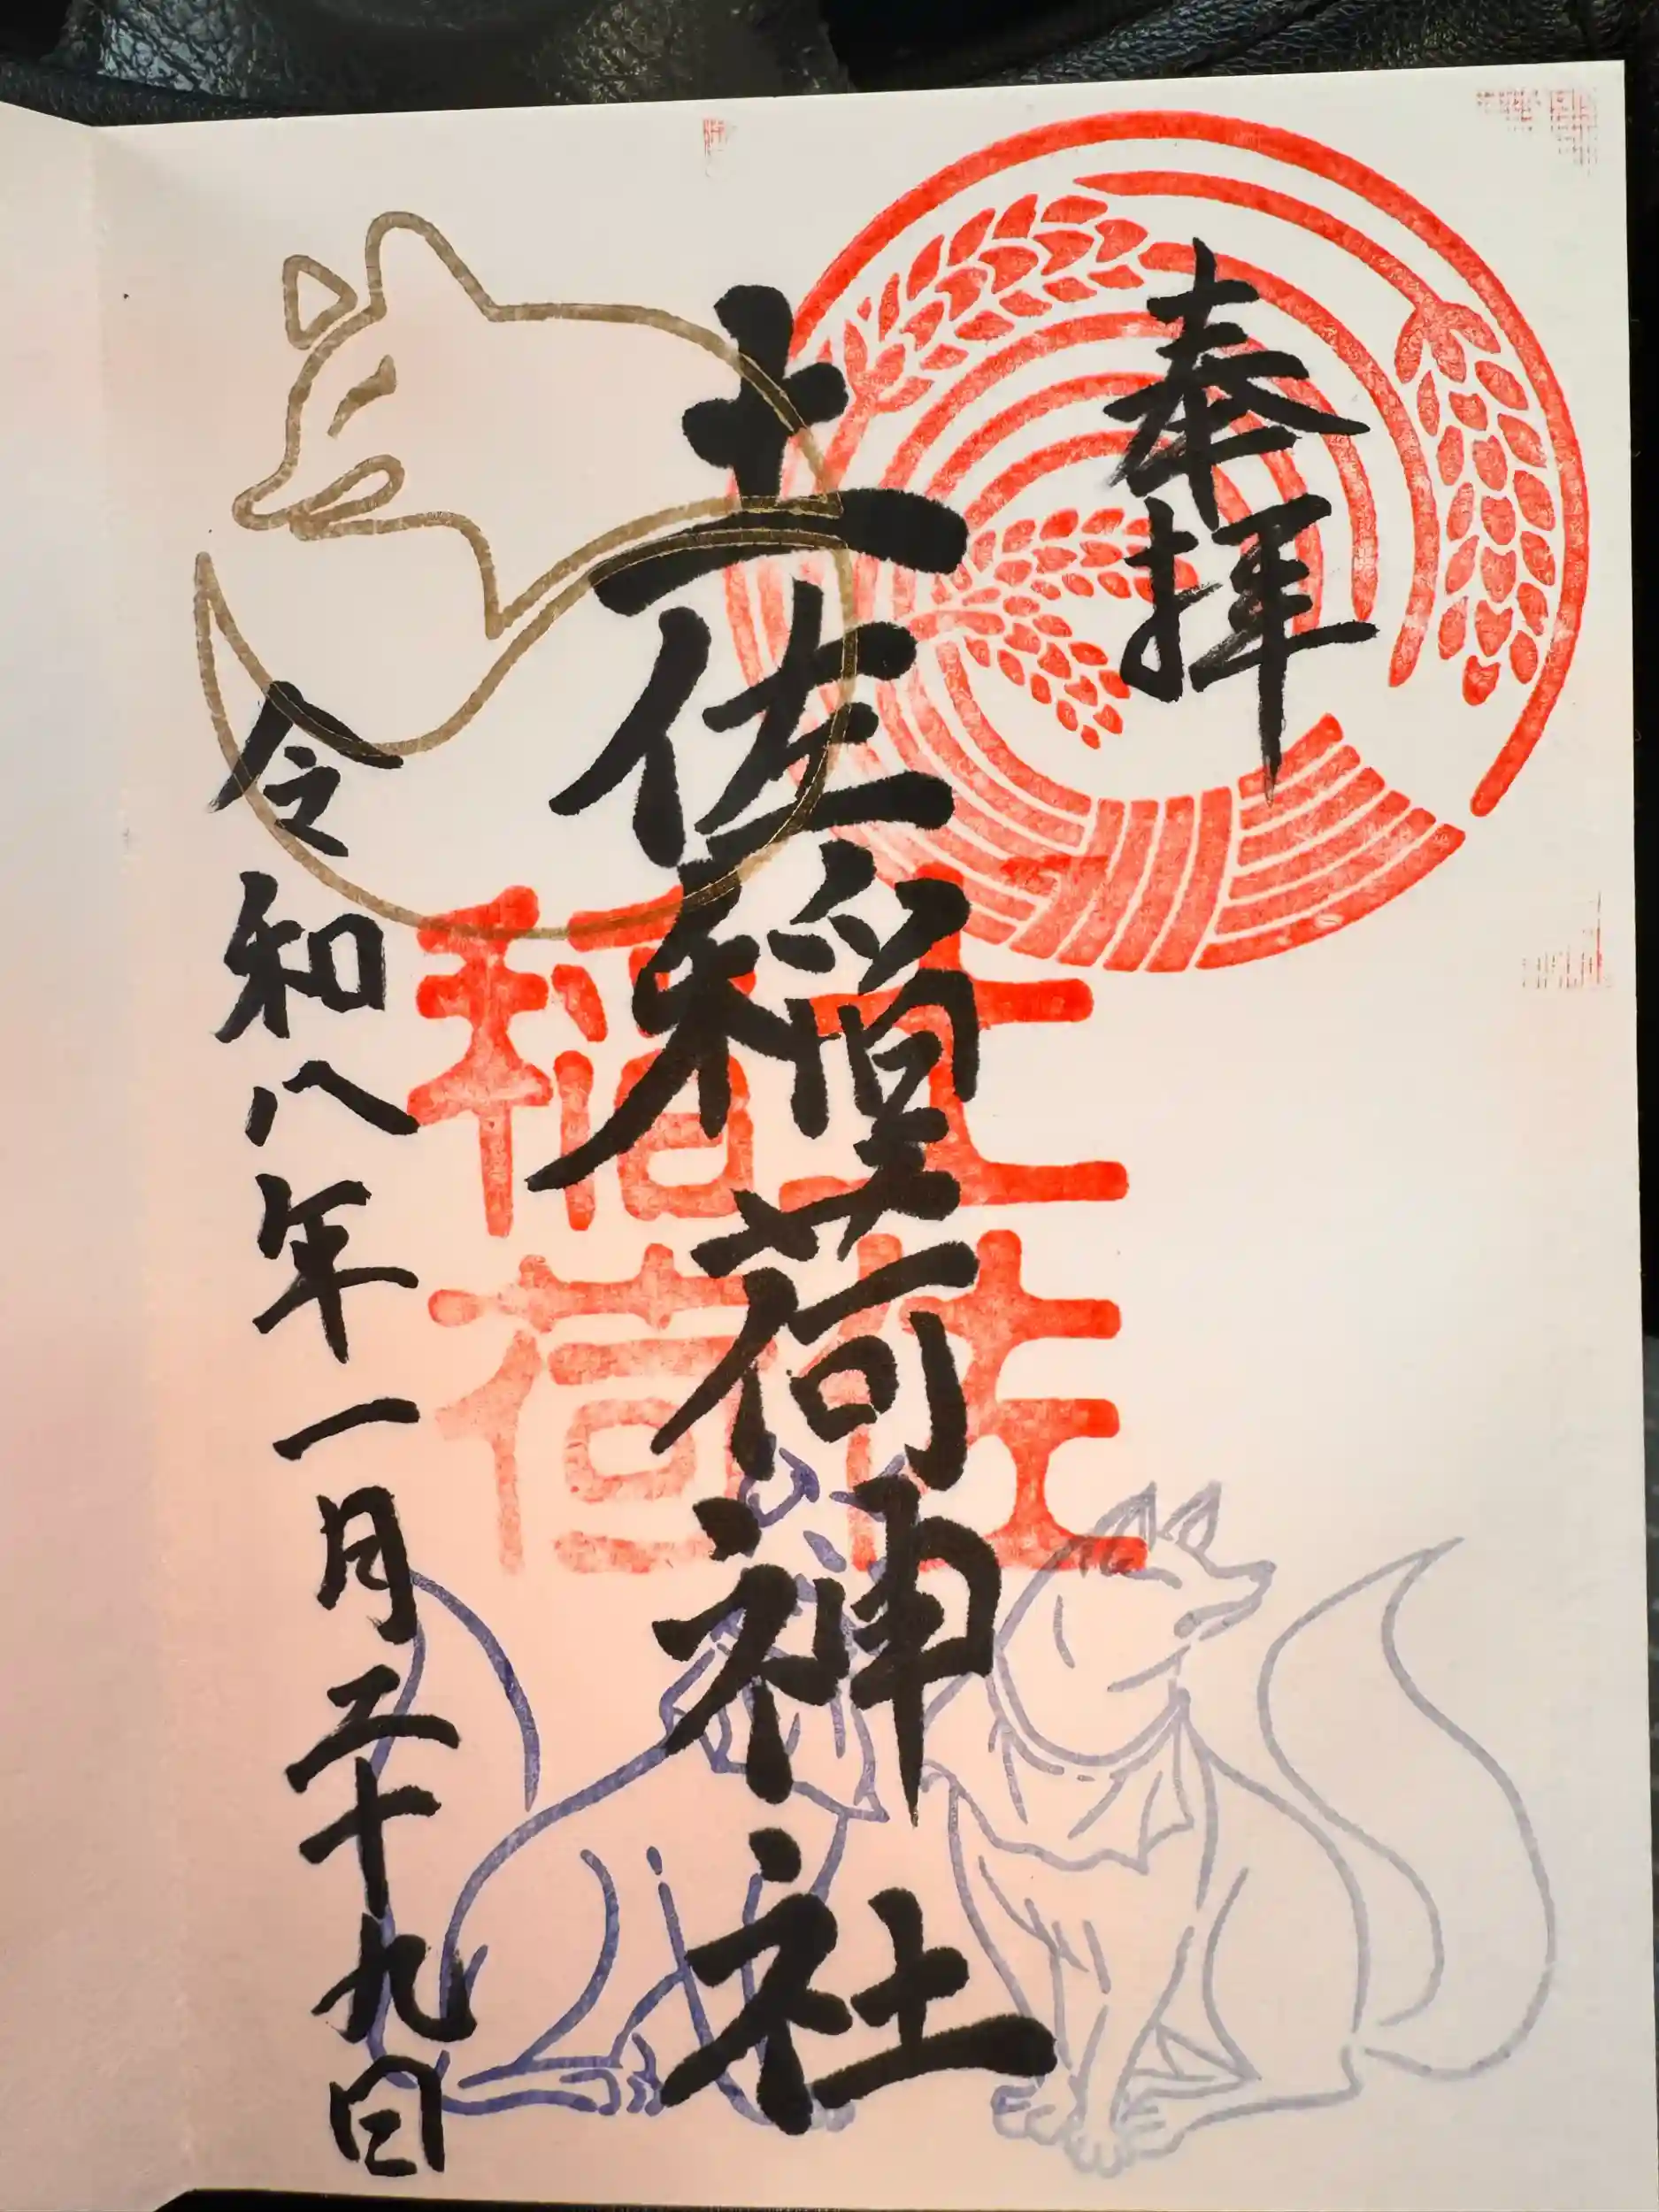 奉拝
土佐稲荷神社
令和八年一月二十九日
土佐
稲荷